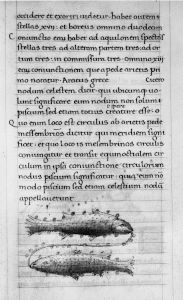 occidere et exoriri videtur. habet autem
stellas xvii. et boreus omnino duodecim
Coniunctio eius habet ad aquilonem spectans
stellas tres ad alteram partem tres ad or
tum tres. in commissura tres. omnino xii
eius coniunctionem que a pede arietis pri
mo notatur. Aratus grece Cicero
nodum celestem. dicit qui ubicumque uo
lunt significare eum nodum non solum
piscium sed etiam totius creature esse. o
Quo enim loco est circulus ab arietis pede
messembrinos dicitur qui meridiem signi
ficet. et quo loco is mesembrinos circulus
coniungitur et transit equinoctialem cir
culum in ipsa coniunctione circulorum
nodus piscium significatur. quare eum no
modo piscium sed etiam celestium nodum
appellauerunt